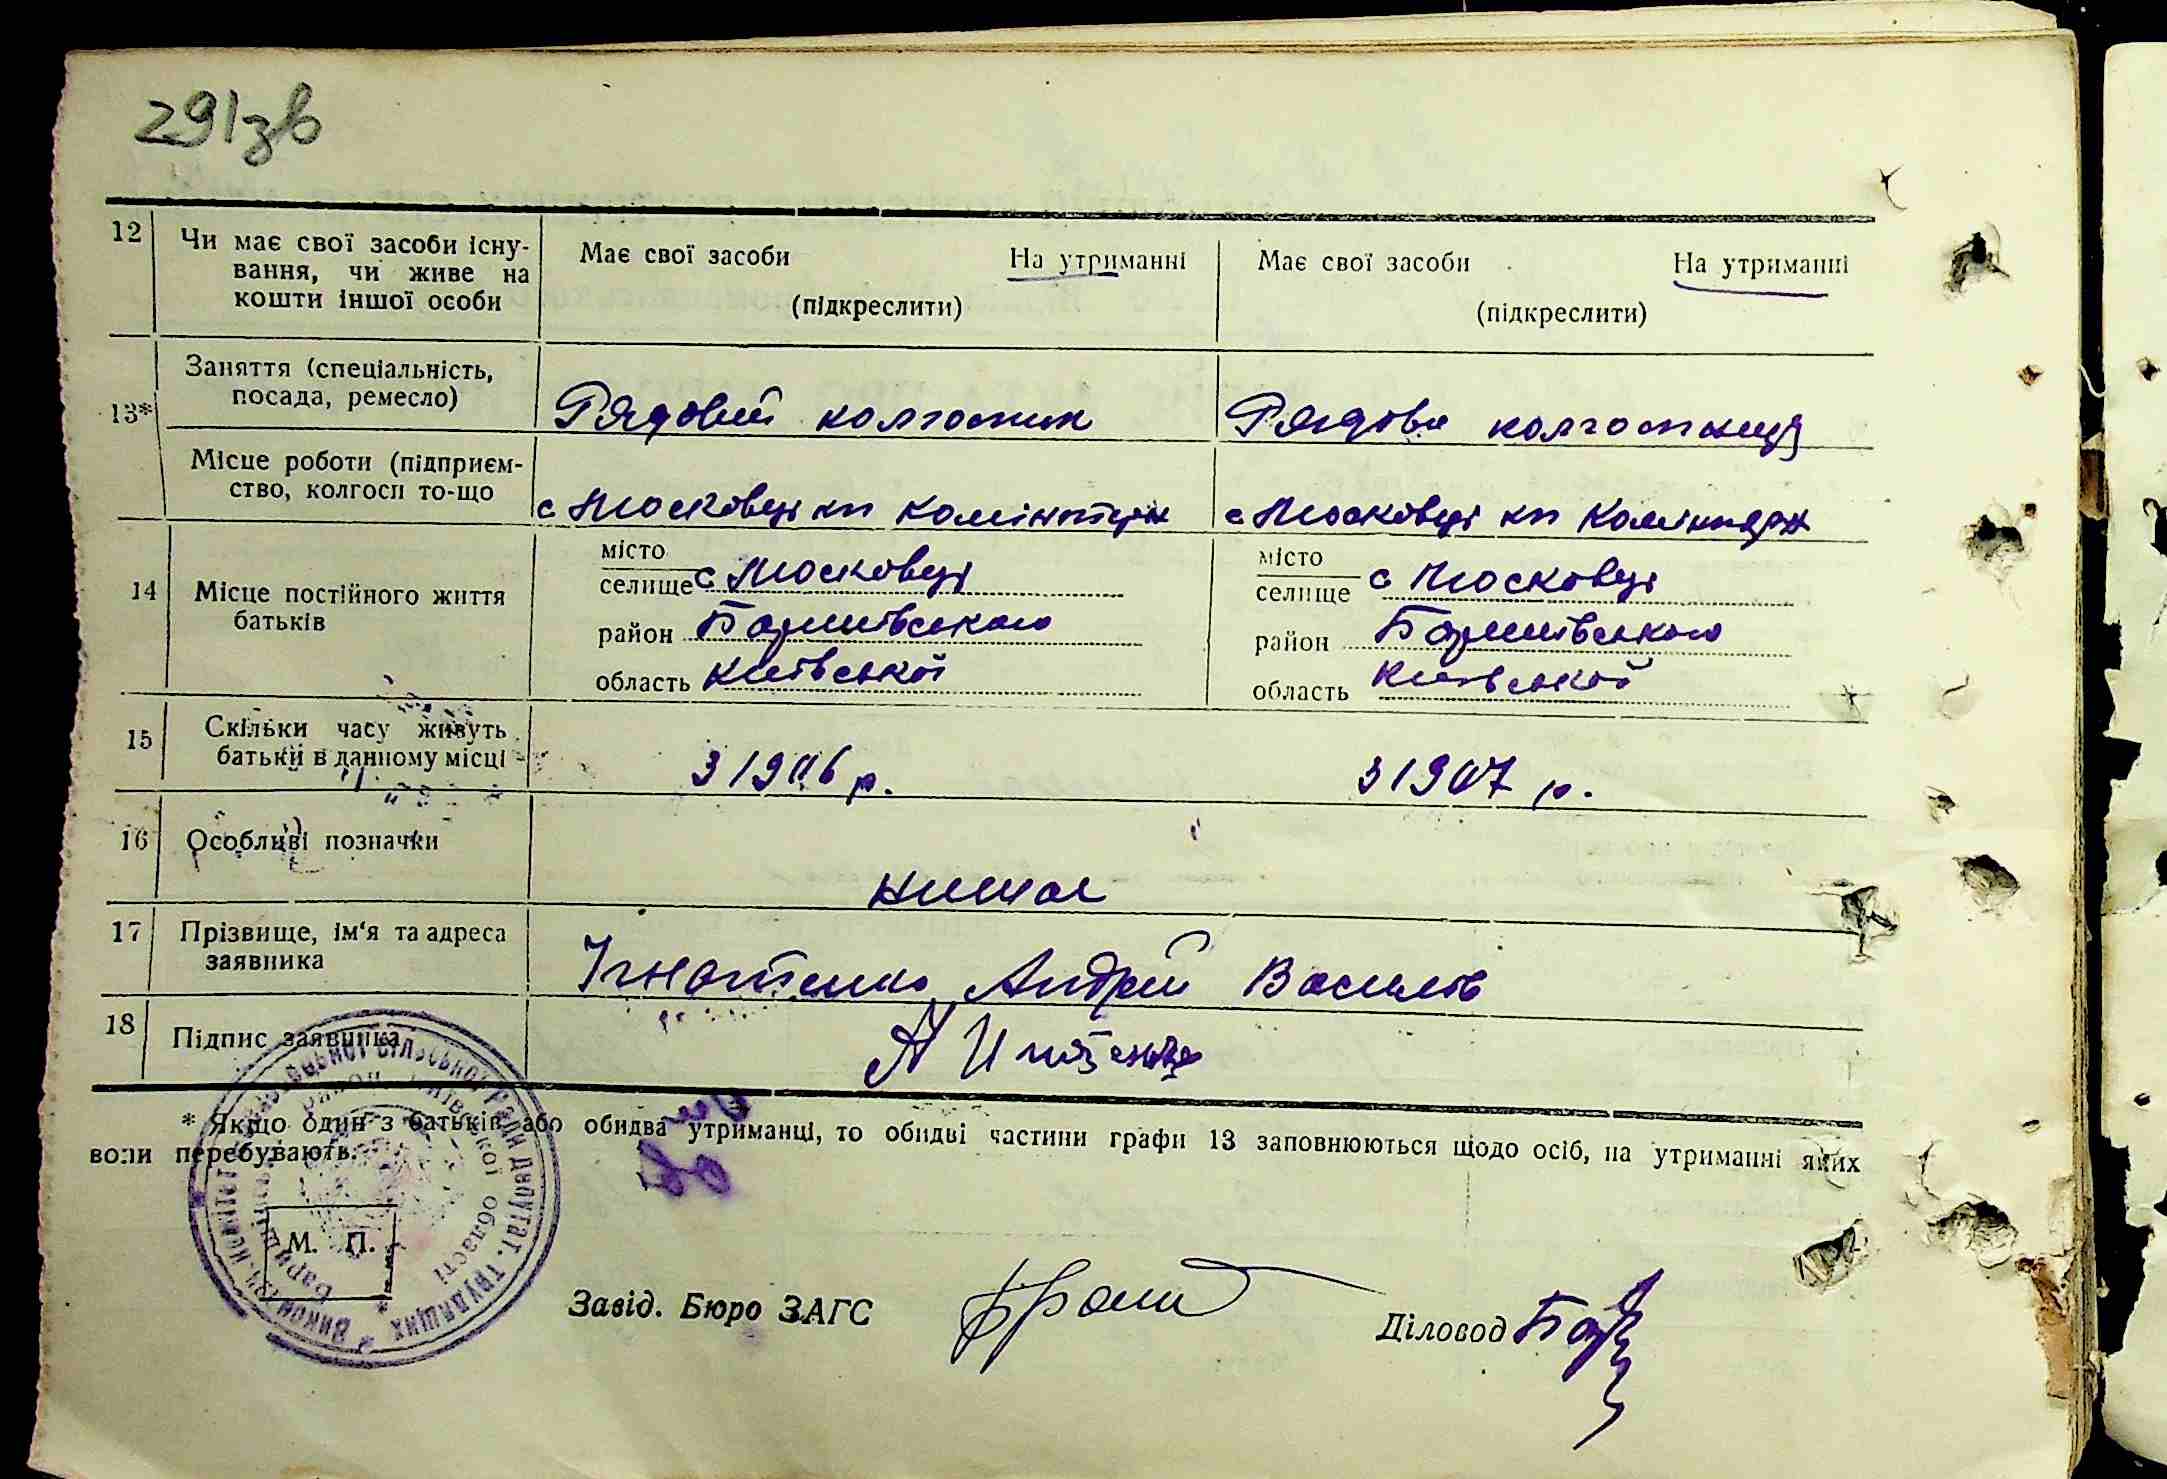 291зв
12 Чи має свої засоби існу-
вання, чи живе на
кошти іншої особи
Має свої засоби На утриманні
(підкреслити)
Має свої засоби На утриманні
(підкреслити)
13*
Заняття (спеціальність,
посада, ремесло)
Рядовий колгоспник
Рядова колгоспниця
Місце роботи (підприєм-
ство, колгосп то-що
с Московці кп Комінтерн
с Московці кп Комінтерн
14 Місце постійного життя
батьків
місто
селище с Московці
район Баришівського
область Київської
місто
селище с Московці
район Баришівського
область Київської
15 Скільки часу живуть
батьки в данному місці
З 1906 р.
З 1907 р.
16 Особливі позначки
немає
17 Прізвище, ім'я та адреса
заявника
Ігнатенко Андрій Василів
18 Підпис заявника
* Якщо один з батьків або обидва утриманці, то обидві частини графи 13 заповнюються щодо осіб, на утриманні яких
вони перебувають.
Викон. ком
сільської Ради Депутат. Трудящих
Київської області
М. П.
Завід. Бюро ЗАГС
Діловод